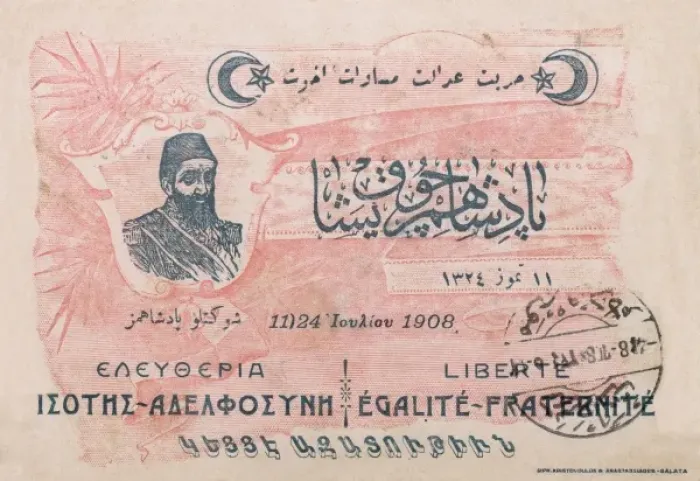 حریت عدالت مساوات اخوت
پادشاهم چوق یشا
١١ تموز ١٣٢٤
شوكتلو پادشاهمز
11)24 Ἰουλίου 1908
ΕΛΕΥΘΕΡΙΑ
ΙΣΟΤΗΣ-ΑΔΕΛΦΟΣΥΝΗ
LIBERTÉ
ÉGALITÉ-FRATERNITÉ
ԿԵՑՑԷ ԱԶԱՏՈՒԹԻՒՆ
GALATA